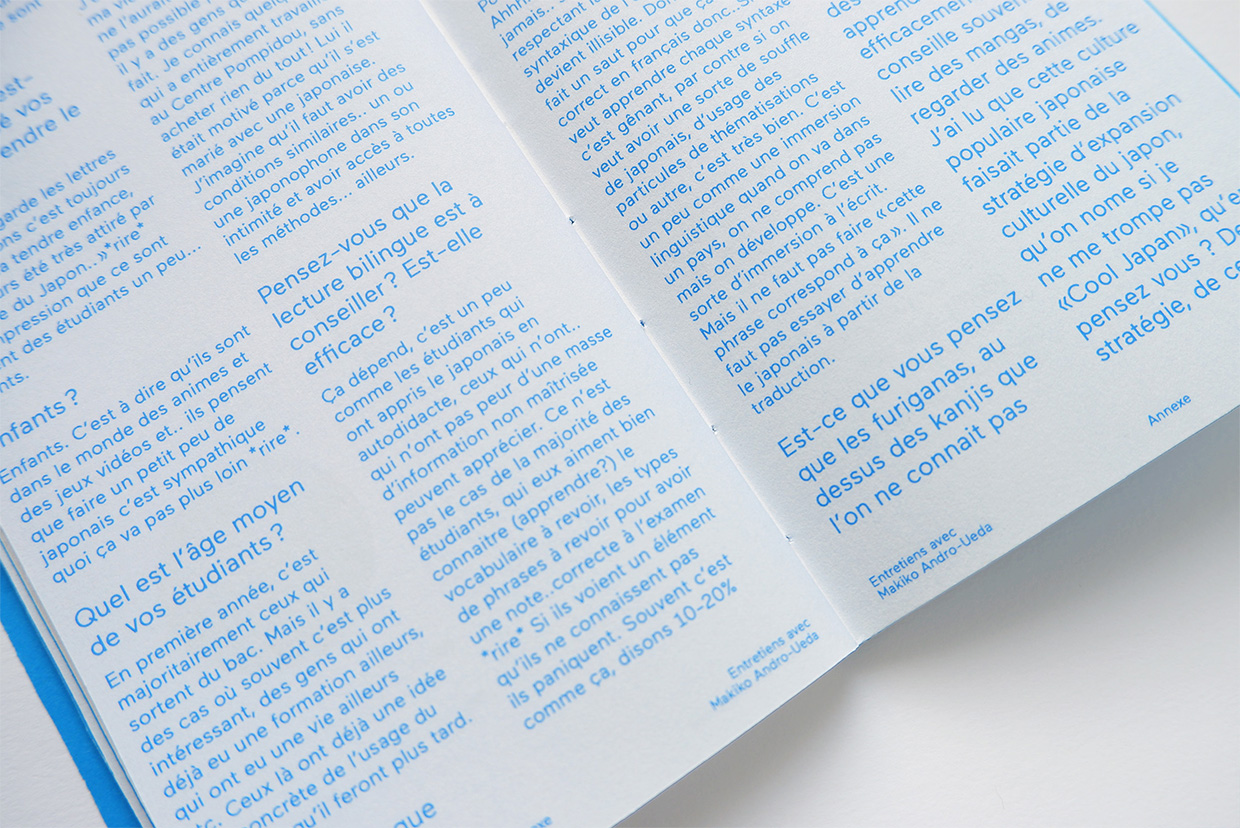 sont
est-
é vos
endre le
garde les lettres
ons c'est toujours
a tendre enfance,
urs été très attiré par
e du Japon..» *rire*
mpression que ce sont
nt des étudiants un peu...
nts.
nfants ?
Enfants. C'est à dire qu'ils sont
dans le monde des animes et
des jeux vidéos et.. ils pensent
que faire un petit peu de
japonais c'est sympathique
quoi ça va pas plus loin *rire*.
Quel est l'âge moyen
de vos étudiants ?
En première année, c'est
majoritairement ceux qui
sortent du bac. Mais il y a
des cas où souvent c'est plus
intéressant, des gens qui ont
déjà eu une formation ailleurs,
qui ont eu une vie ailleurs
etc. Ceux là ont déjà une idée
concrète de l'usage du
qu'il feront plus tard.
que
ne l'aurai
pas possible
il y a des gens qu
fait. Je connais quelq
qui a entièrement travaillé
au Centre Pompidou, sans
acheter rien du tout! Lui il
était motivé parce qu'il s'est
marié avec une japonaise.
J'imagine qu'il faut avoir des
conditions similaires.. un ou
une japonophone dans son
intimité et avoir accès à toutes
les méthodes... ailleurs.
Pensez-vous que la
lecture bilingue est à
conseiller ? Est-elle
efficace ?
Ça dépend, c'est un peu
comme les étudiants qui
ont appris le japonais en
autodidacte, ceux qui n'ont..
qui n'ont pas peur d'une masse
d'information non maîtrisée
peuvent apprécier. Ce n'est
pas le cas de la majorité des
étudiants, qui eux aiment bien
connaitre (apprendre?) le
vocabulaire à revoir, les types
de phrases à revoir pour avoir
une note..correcte à l'examen
*rire* Si ils voient un élément
qu'ils ne connaissent pas
ils paniquent. Souvent c'est
comme ça, disons 10-20%
Entretiens avec
Makiko Andro-Ueda
Anhhh
jamais..
respectant le
syntaxique de l'
devient illisible. Don
fait un saut pour que ça
correct en français donc..Si
veut apprendre chaque syntaxe
c'est gênant, par contre si on
veut avoir une sorte de souffle
de japonais, d'usage des
particules de thématisations
ou autre, c'est très bien. C'est
un peu comme une immersion
linguistique quand on va dans
un pays, on ne comprend pas
mais on développe. C'est une
sorte d'immersion à l'écrit.
Mais il ne faut pas faire «cette
phrase correspond à ça». Il ne
faut pas essayer d'apprendre
le japonais à partir de la
traduction.
Est-ce que vous pensez
que les furiganas, au
dessus des kanjis que
l'on ne connait pas
Entretiens avec
Makiko Andro-Ueda
des
apprend
efficacement
conseille souven
lire des mangas, de
regarder des animes.
J'ai lu que cette culture
populaire japonaise
faisait partie de la
stratégie d'expansion
culturelle du japon,
qu'on nome si je
ne me trompe pas
«Cool Japan», qu'e
pensez vous ? De
stratégie, de ce
Annexe